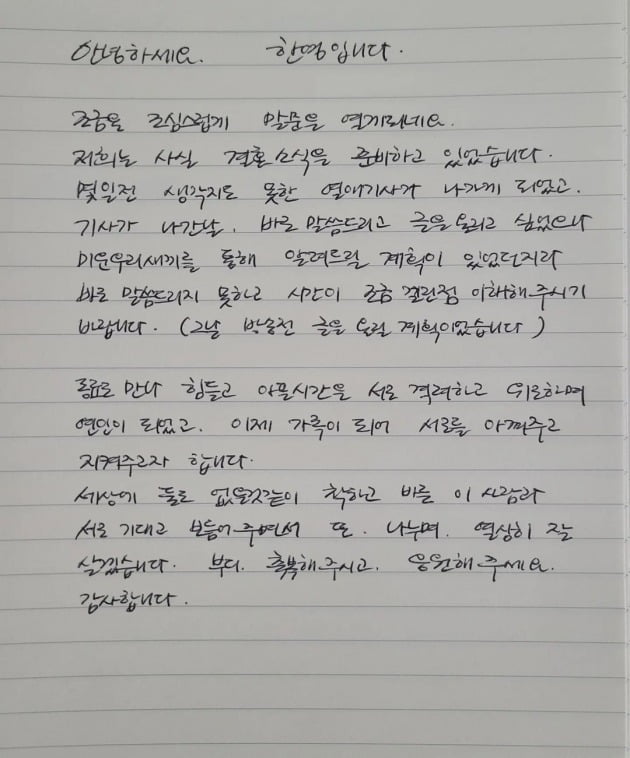 안녕하세요. 한영입니다.
조금은 조심스럽게 말문을 열게되네요.
저희는 사실 결혼소식을 준비하고 있었습니다.
몇일전 생각지도 못한 열애기사가 나가게 되었고.
기사가 나간날. 바로 말씀드리고 글을올리고 싶었으나
미운우리새끼를 통해 알려드릴 계획이 있었던지라
바로 말씀드리지 못하고 시간이 조금 걸린점 이해해주시기
바랍니다. (그날 방송전 글을 올릴 계획이었습니다)
동료로 만나 힘들고 아플시간을 서로 격려하고 위로하며
연인이 되었고. 이제 가족이 되어 서로를 아껴주고
지켜주고자 합니다.
세상에 둘도 없을것같이 착하고 바른 이 사람과
서로 기대고 보듬어주면서 또. 나누며. 열심히 잘
살겠습니다. 부디. 축복해주시고. 응원해주세요.
감사합니다.